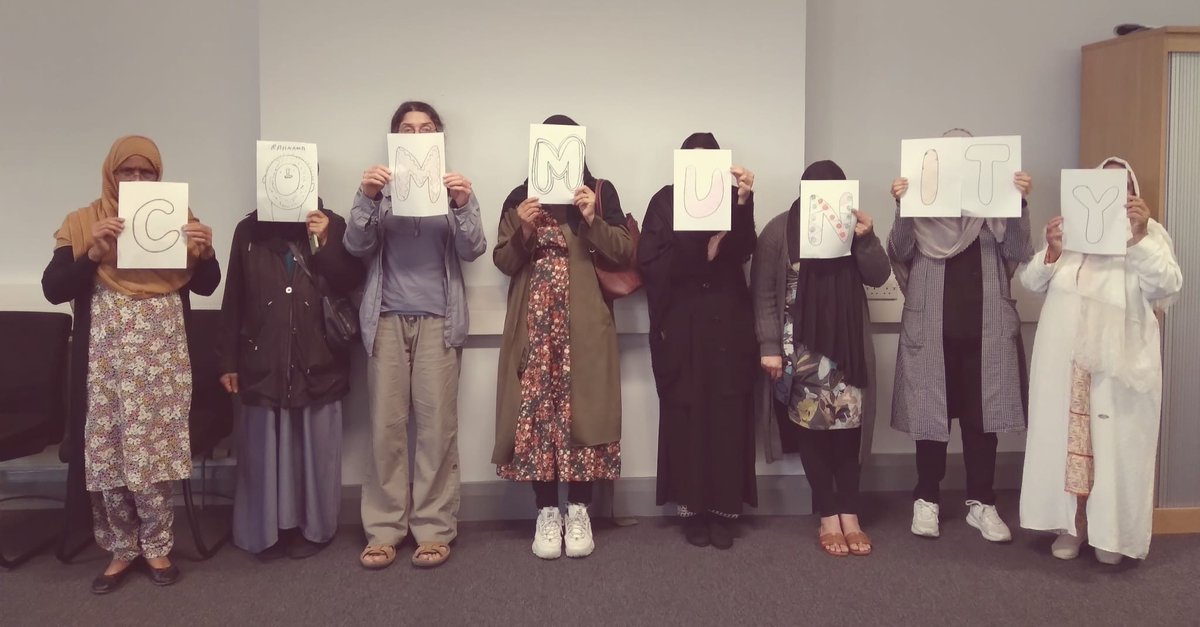 C O M M U N I T Y